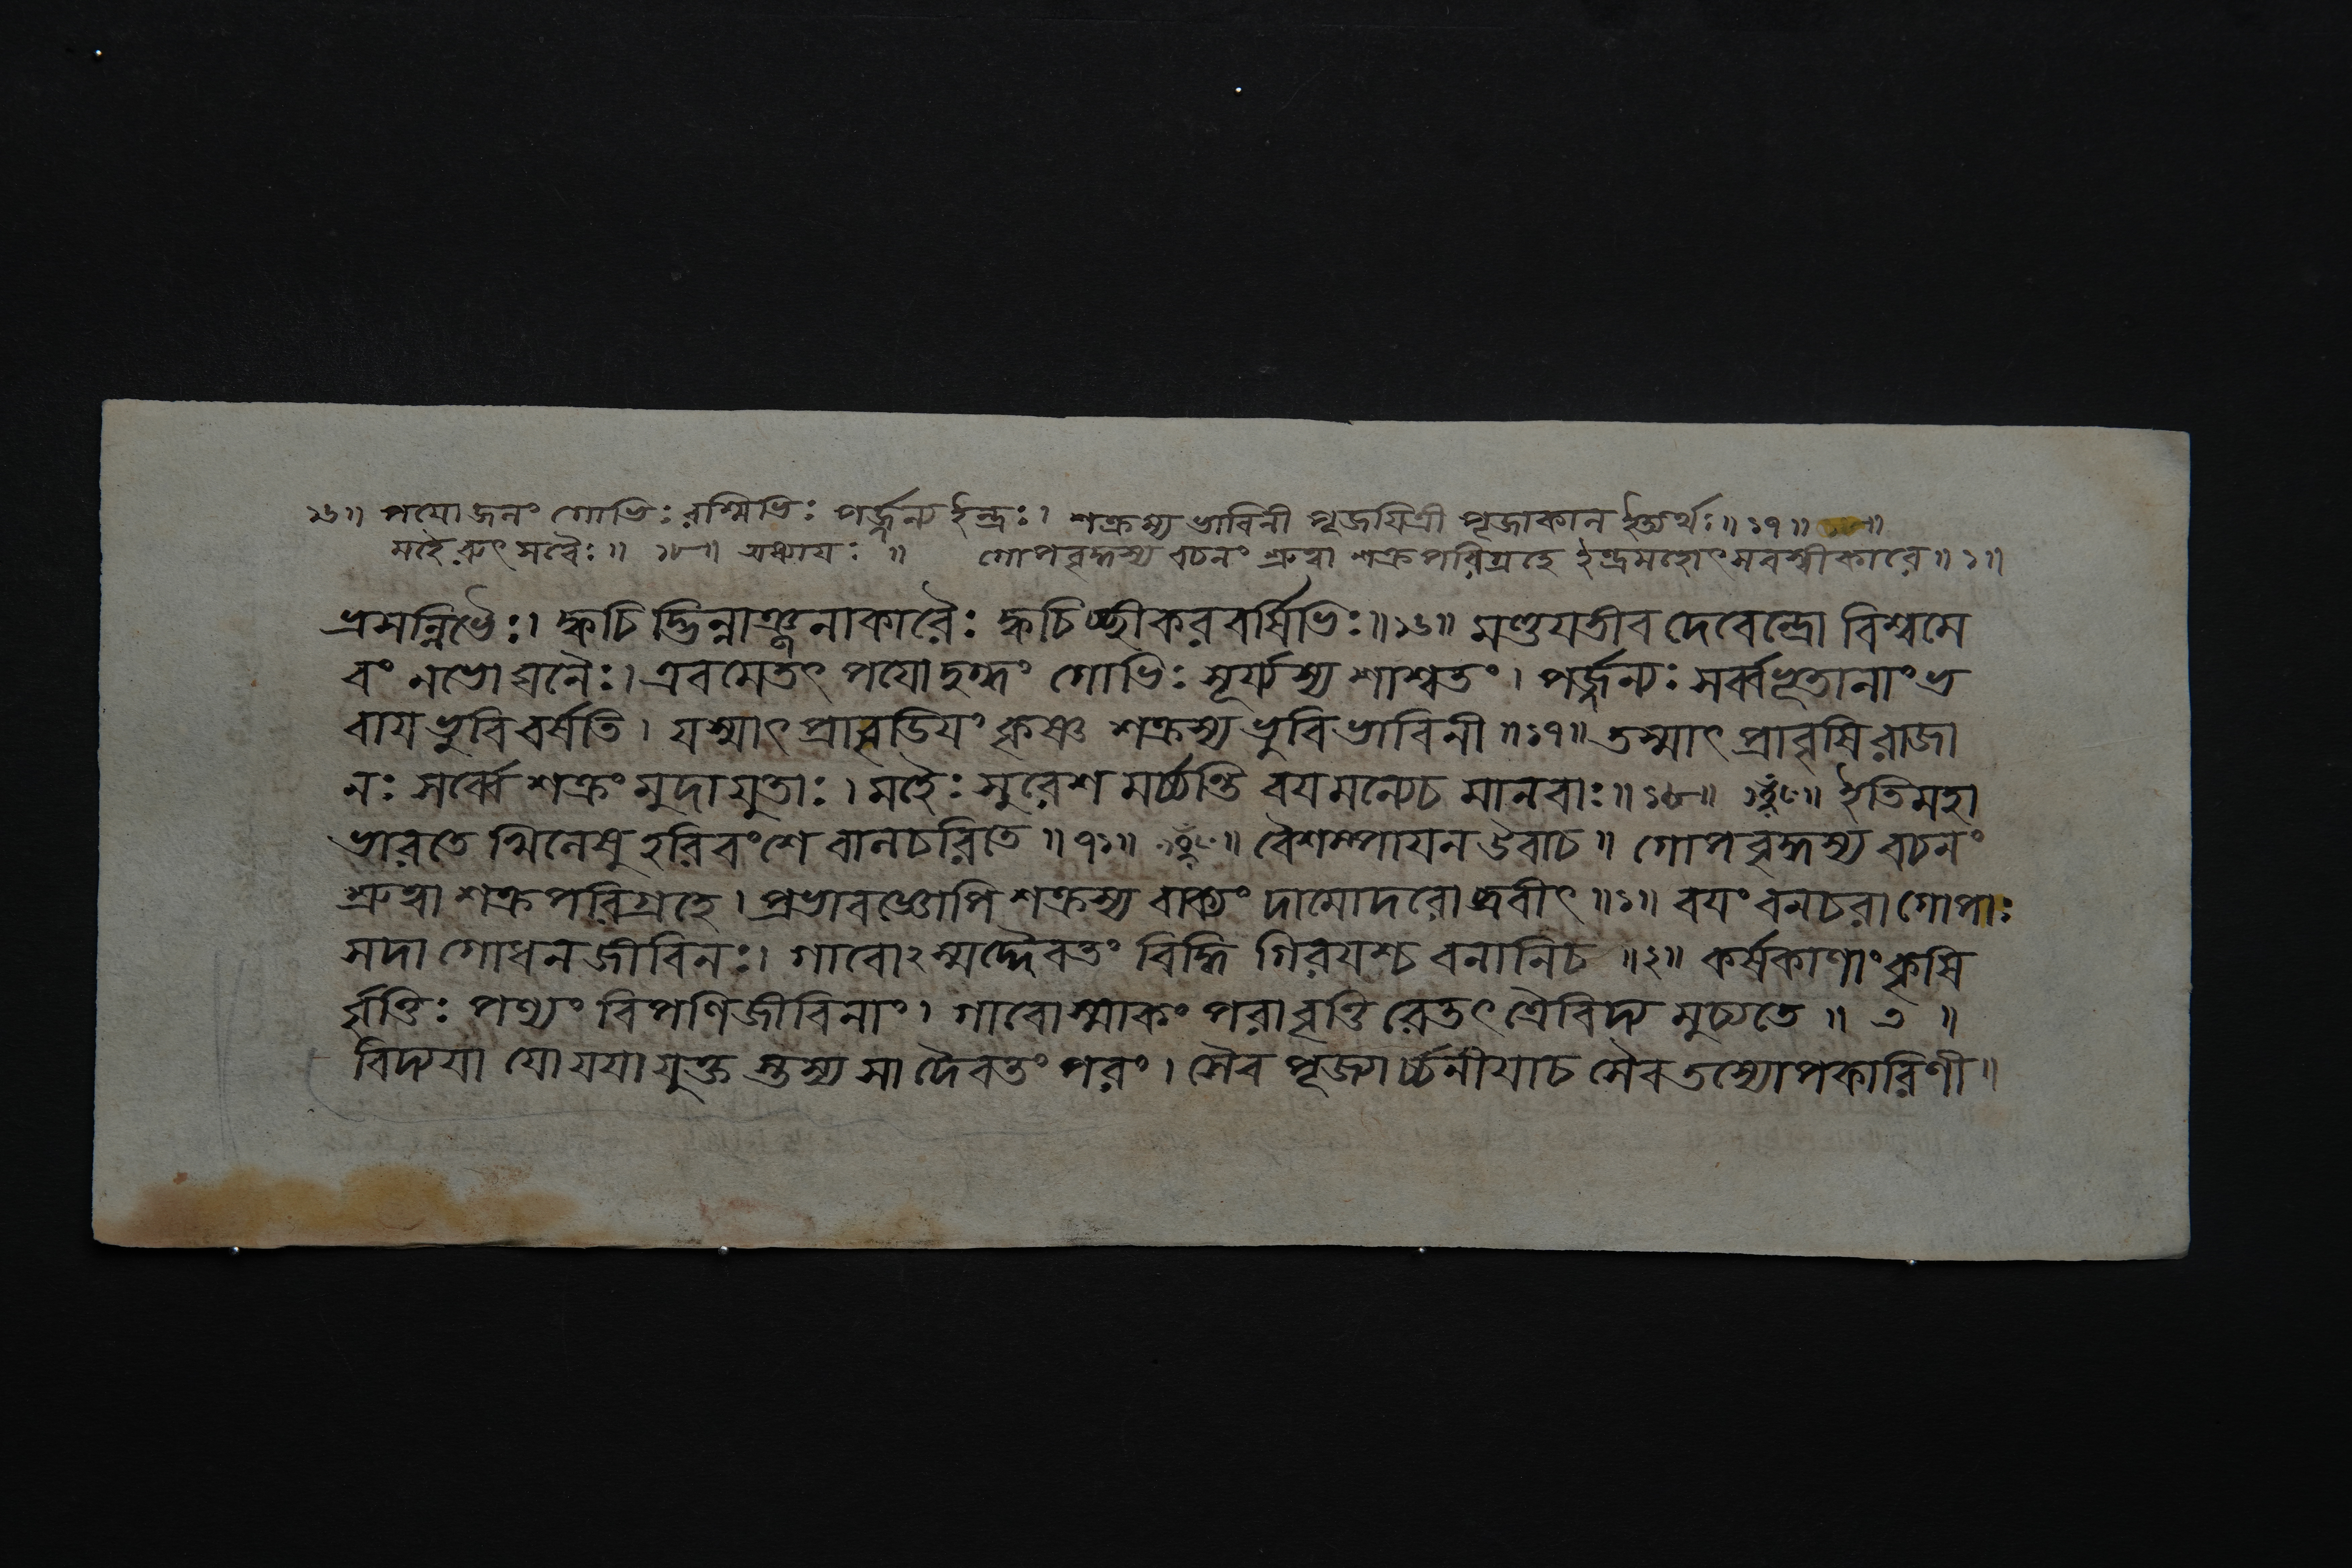 ১৬॥ পয়োজনং গোভিঃ রশ্মিভিঃ পর্জ্জন্য ইন্দ্রঃ। শক্রস্য ভাবিনী পূজয়িত্রী পূজাকান ইত্যর্থঃ॥ ১৭॥
মহৈরুৎসবৈঃ॥ ১৮॥ অধ্যায়ঃ ॥ গোপবৃদ্ধস্য বচনং শ্রুত্বা শক্রপরিগ্রহে ইন্দ্রমহোৎসবস্বীকারে॥ ১॥
ভ্রমন্নিভৈঃ। ক্বচিদ্ভিন্নাঞ্জনাকারৈঃ ক্বচিচ্ছীকরবর্ষিভিঃ॥১৬॥ মণ্ডয়তীব দেবেন্দ্রো বিশ্বমে
বং নভো ঘনৈঃ। এবমেতৎ পয়োদুগ্ধং গোভিঃ সূর্য্যস্য শাশ্বতং। পর্জ্জন্যঃ সর্ব্বভূতানাং ভ
বায় ভুবি বর্ষতি। যস্মাৎ প্রাবৃডিয়ং কৃষ্ণ শক্রস্য ভুবি ভাবিনী॥১৭॥ তস্মাৎ প্রাবৃষি রাজা
নঃ সর্ব্বে শক্রং মুদা যুতাঃ। মহৈঃ সুরেশ মর্চ্চন্তি বয়মন্যেচ মানবাঃ॥ ১৮॥ ইতি মহা
ভারতে খিলেষু হরিবংশে বালচরিতে॥ ৭১॥ বৈশম্পায়ন উবাচ॥ গোপবৃদ্ধস্য বচনং
শ্রুত্বা শক্রপরিগ্রহে। প্রভাবজ্ঞোপি শক্রস্য বাক্যং দামোদরো ব্রবীৎ॥১॥ বয়ং বনচরা গোপাঃ
সদা গোধনজীবিনঃ। গাবোঽস্মদ্দৈবতং বিদ্ধি গিরয়শ্চ বনানিচ ॥২॥ কর্ষকাণাং কৃষি
র্বৃত্তিঃ পণ্যং বিপণিজীবিনাং। গাবোস্মাকং পরা বৃত্তি রেতৎ ত্রৈবিদ্য মুচ্যতে॥ ৩ ॥
বিদ্যয়া যো যয়া যুক্ত স্তস্য সা দৈবতং পরং। সৈব পূজ্যার্চ্চনীয়াচ সৈব তস্যোপকারিণী॥